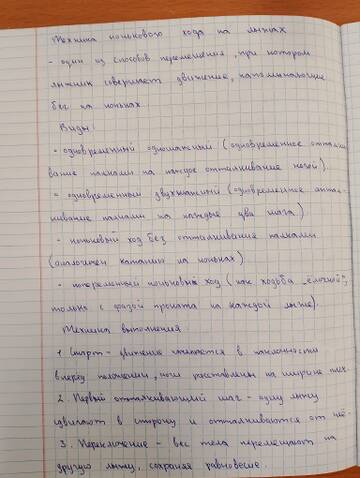 Техника конькового хода на лыжах
- один из способов перемещения, при котором
лыжник совершает движение, напоминающие
бег на коньках
Виды:
- одновременный одношажный (одновременное отталки-
вание палками на каждое отталкивание ногой)
- одновременный двухшажный (одновременное оттал-
кивание палками на каждые два шага)
- коньковый ход без отталкивания палками
(аналогичен катанию на коньках)
- попеременный коньковый ход (как ходьба "ёлочкой",
только с фазой проката на каждой лыже).
Техника выполнения
1. Старт - движение начинается в наклонности
вперёд положении, ноги расставлены на ширине плеч.
2. Первый отталкивающий шаг - одну лыжу
сдвигают в сторону и отталкиваются от неё.
3. Переключение - вес тела перемещают на
другую лыжу, сохраняя равновесие.